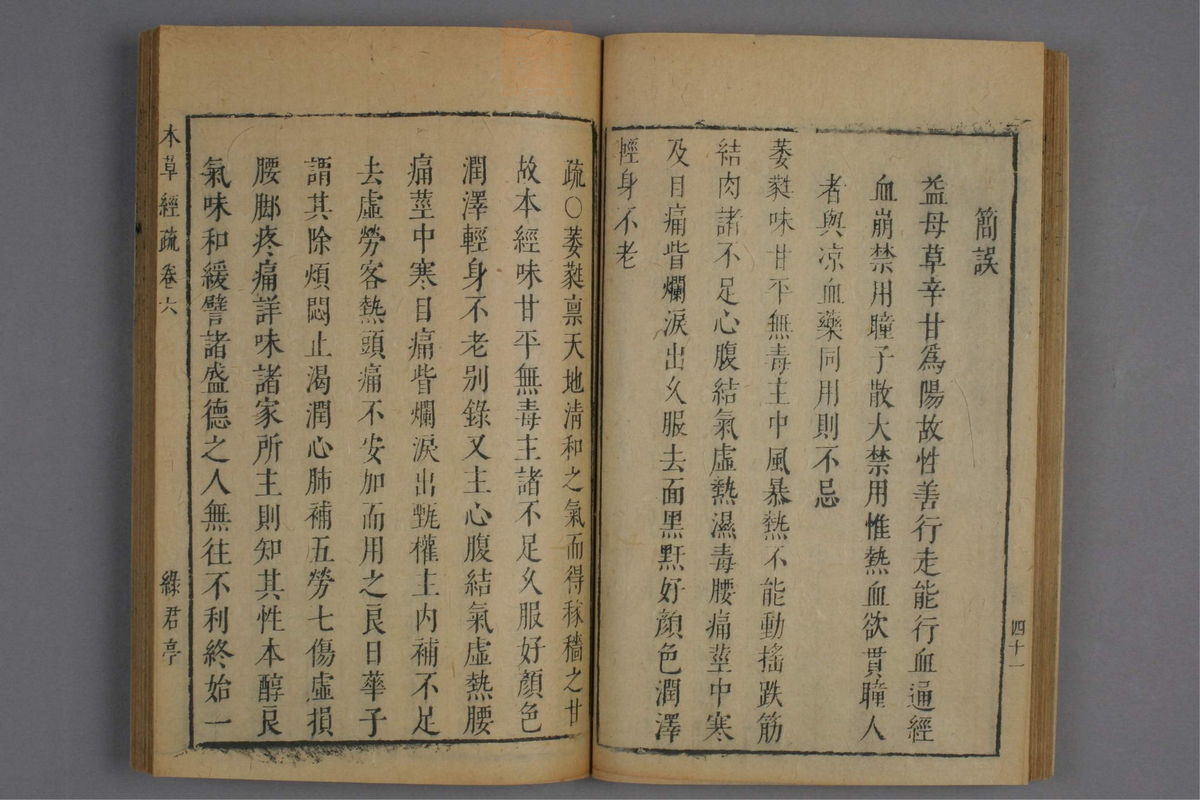 簡誤
益母草辛甘爲陽故性善行走能行血通經
血崩禁用瞳子散大禁用惟熱血欲貫瞳人
者與凉血藥同用則不忌
萎蕤味甘平無毒主中風暴熱不能動搖跌筋
結肉諸不足心腹結氣虛熱濕毒腰痛莖中寒
及目痛眥爛淚出久服去面黑䵟好顔色潤澤
輕身不老
四十一
疏〇萎蕤禀天地清和之氣而得稼穡之甘
故本經味甘平無毒主諸不足久服好顔色
潤澤輕身不老别錄又主心腹結氣虛熱腰
痛莖中寒目痛眥爛淚出甄權主內補不足
去虛勞客熱頭痛不安加而用之良日華子
謂其除煩悶止渴潤心肺補五勞七傷虛損
腰脚疼痛詳味諸家所主則知其性本醇良
氣味和緩譬諸盛德之人無往不利終始一
本草經疏 卷六 綠君亭